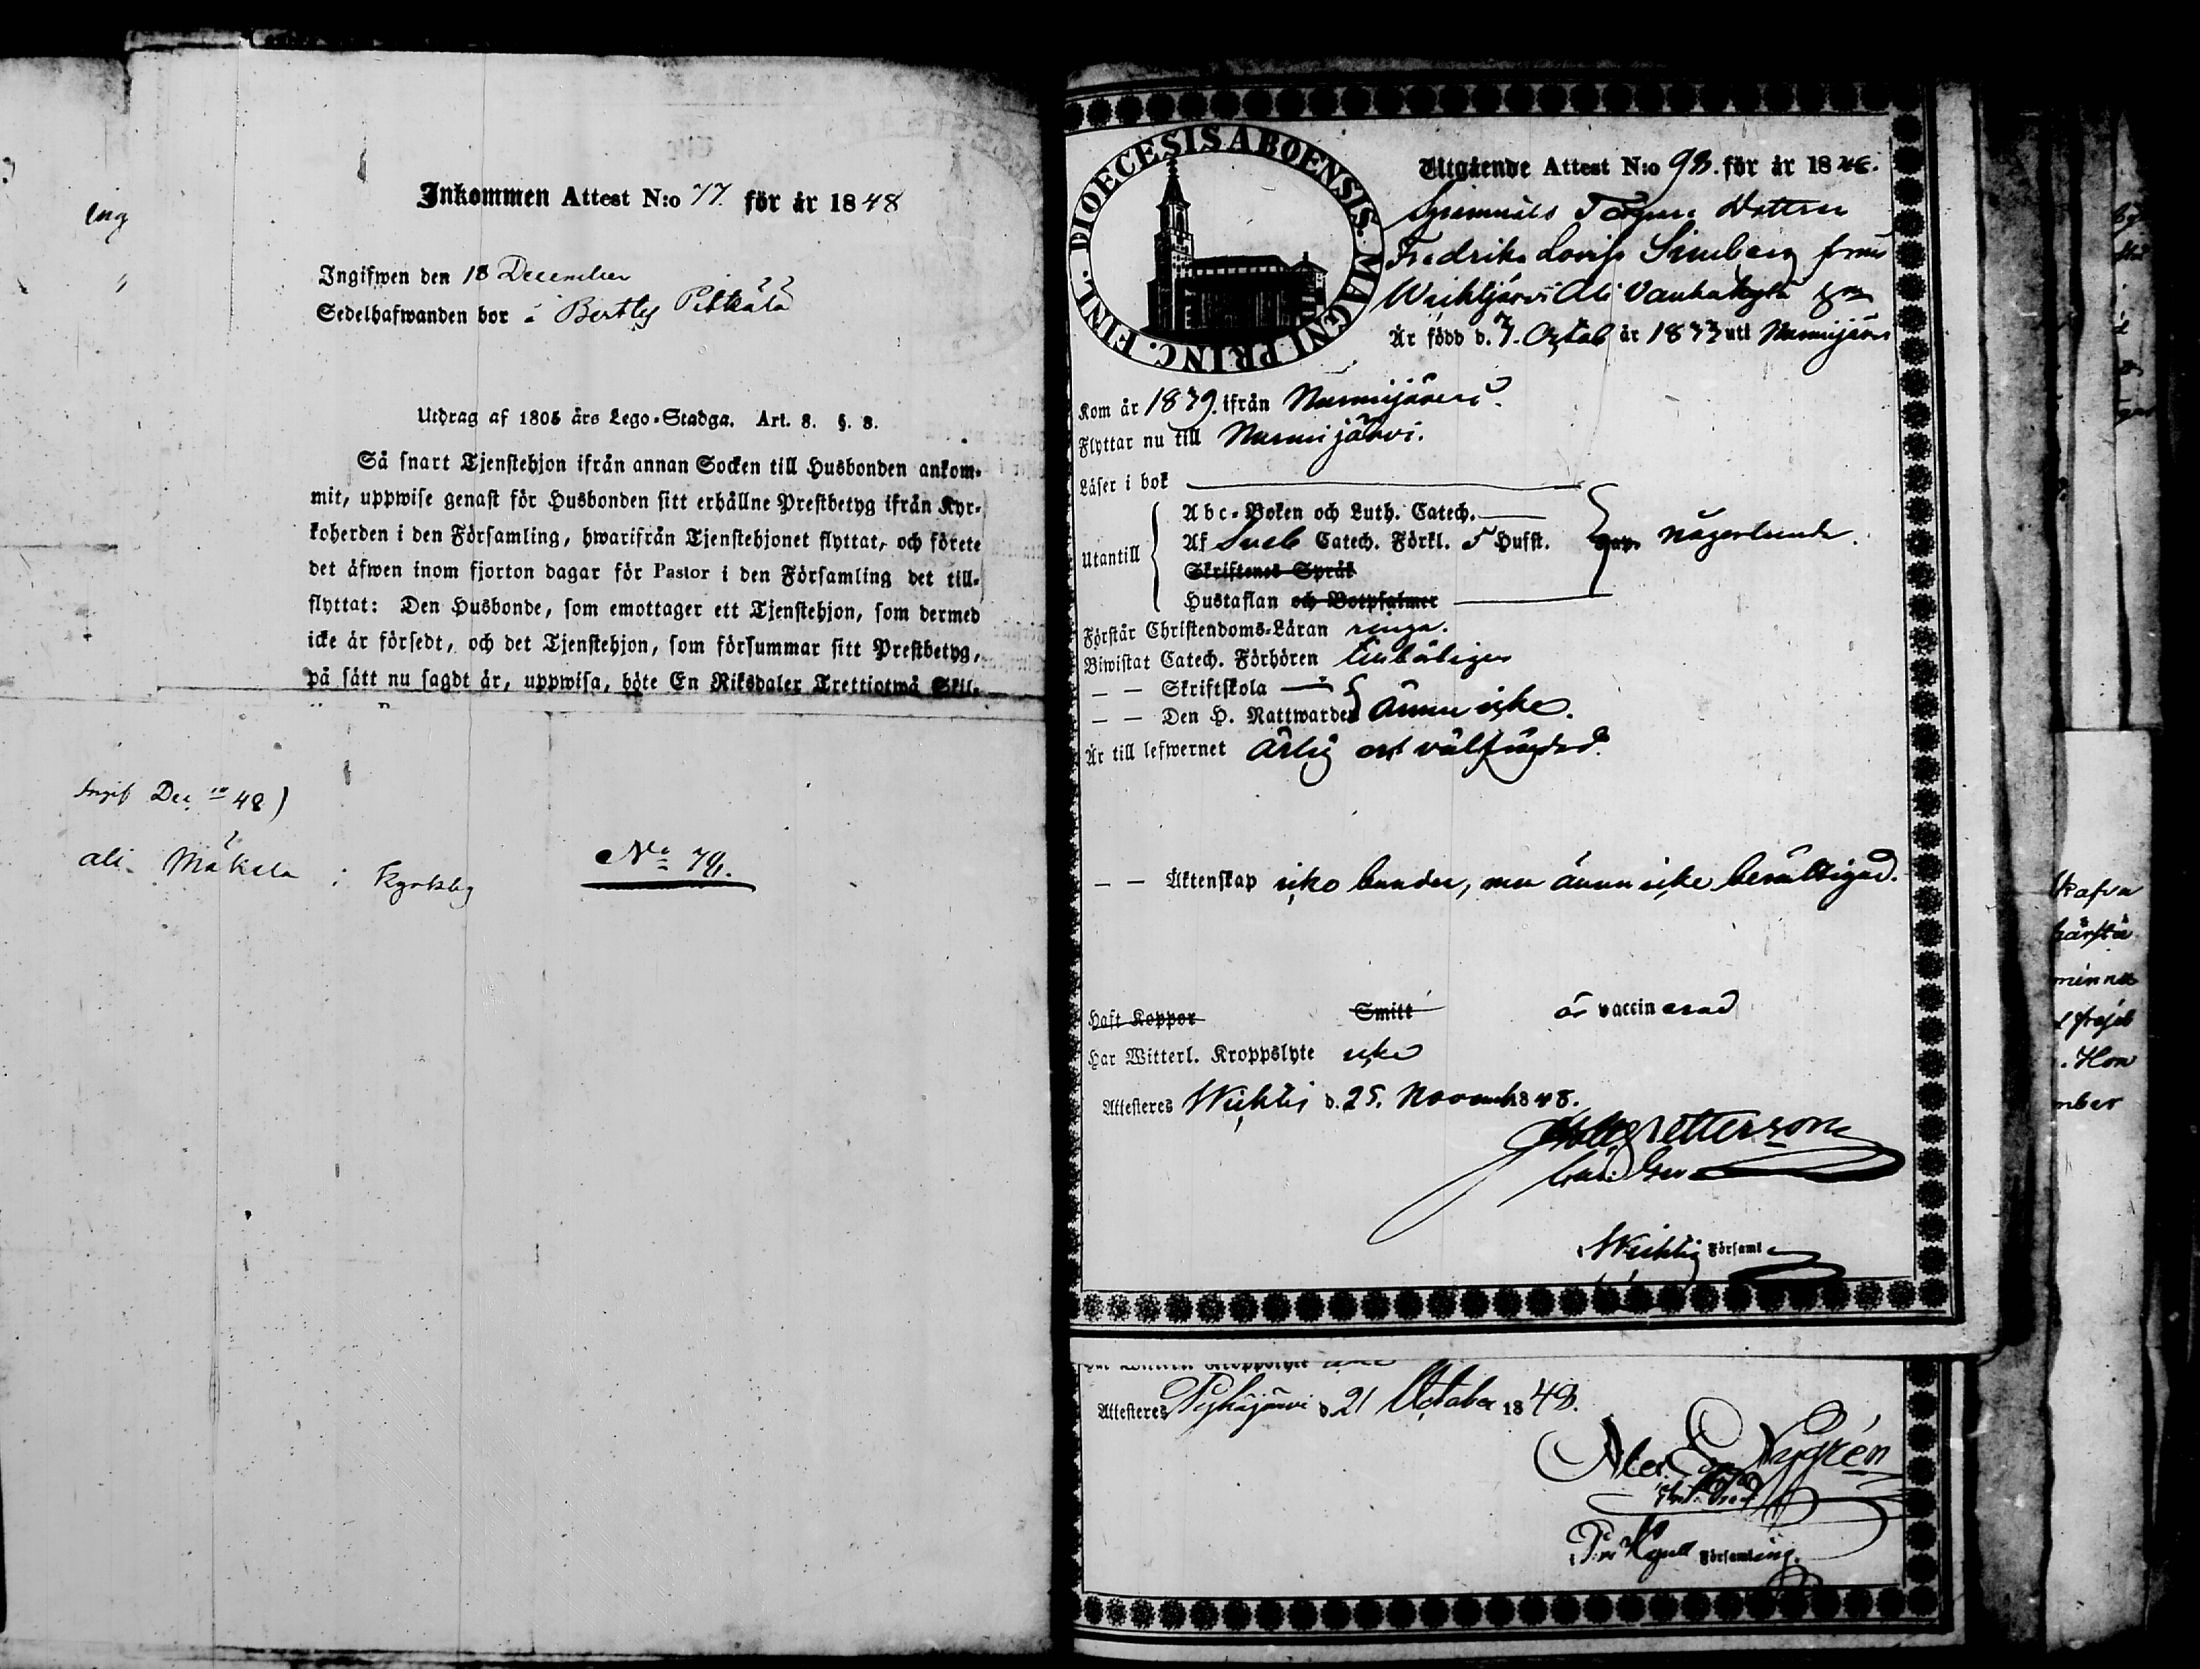 Ing
"
Inkommen Attest N:o 77. för år 1848
Ingifwen den 18 December
Sedelhafwanden bor i Bertby Pitkälä
Utdrag af 1805 års Lego-Stadga. Art. 8. §. 8.
Så snart Tjenstehjon ifrån annan Socken till Husbonden ankom-
mit, uppwise genast för Husbonden sitt erhållne Prestbetyg ifrån Kyr-
koherden i den Församling, hwarifrån Tjenstehjonet flyttat, och förete
det äfwen inom fjorton dagar för Pastor i den Församling det till-
flyttat: Den Husbonde, som emottager ett Tjenstehjon, som dermed
icke är försedt, och det Tjenstehjon, som försummar sitt Prestbetyg,
på sätt nu sagdt är, uppwisa, böte En Riksdaler Trettiotwå Skil-
Ingif Dec. 48)
Ali Mäkelä i Kyrkby
No 78.
DIOECESIS ABOENSIS. MAGNI PRINC. FINL.
Utgående Attest N:o 98. för år 1848.
Dottern
Fredrika Lovisa Simberg från
Wichtjärvi Ali Vanhakylä
Är född d. 7. Octob år 1833 uti Nurmijärvi
Kom år 1839. ifrån Nurmijärvi.
Flyttar nu till Nurmijärvi.
Läser i bok
Utantill
Abc-Boken och Luth. Catech.
Af Sveb Catech. Förkl. 5 Hufst. någorlunda.
Skriftenes Språk
Hustaflan och Botpsalmer
Förstår Christendoms-Läran ringa.
Biwistat Catech. Förhören
— — Skriftskola
— — Den H. Nattwarden ännu icke.
Är till lefwernet ärlig och välfrägdad.
— — Äktenskap icke bunden, men ännu icke berättigad.
Haft Koppor Smitt är vaccinerad
Har Witterl. Kroppslyte icke
Attesteres Wichtis d. 25. Novemb 1848.
Pettersson
i Wichtis Församl
Attesteres Pyhäjärvi d 21 October 1848.
Alex. Nygrén
Församling.
Skafva
minna
. Hon
mber